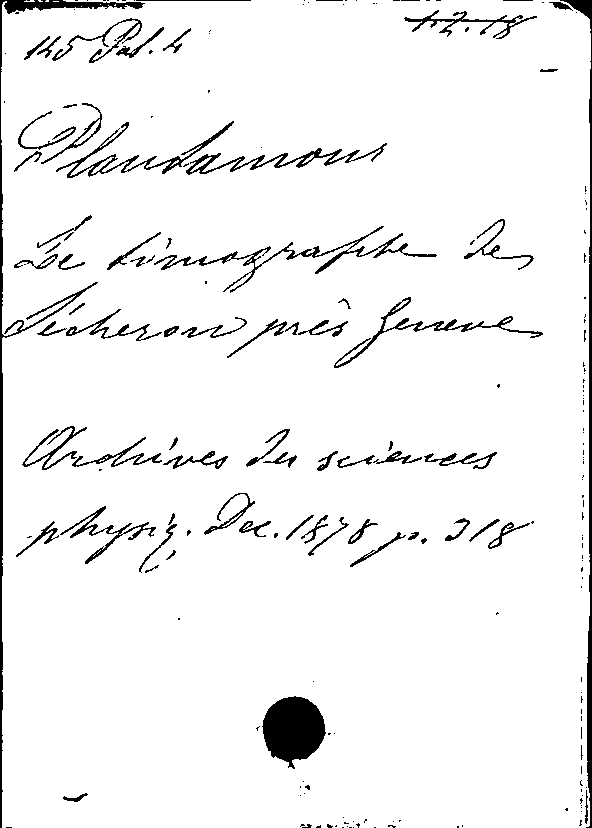 12.18
145 Pat. 4
Plantamour
Le limnographe de
Sécheron près Geneve
Archives des sciences
physiq. Dec. 1878 p. 318